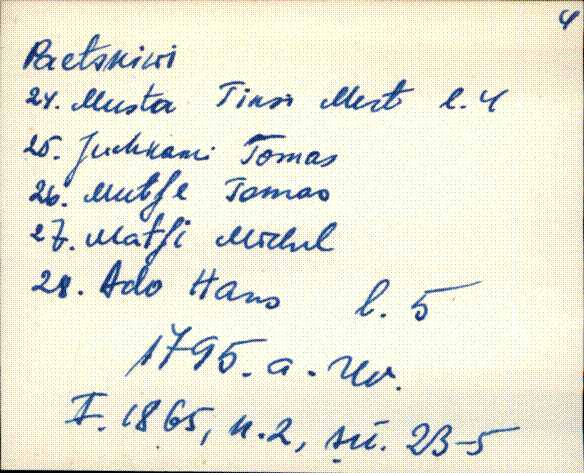 4
Paetskiwi
24. Musta Tinso Mert l. 4
25. Juhkami Tomas
26. Mutsle Tomas
27. Matsi Michel
28. Ado Hans l. 5
1795. a. rev.
F. 1865, n. 2, sü. 23-5